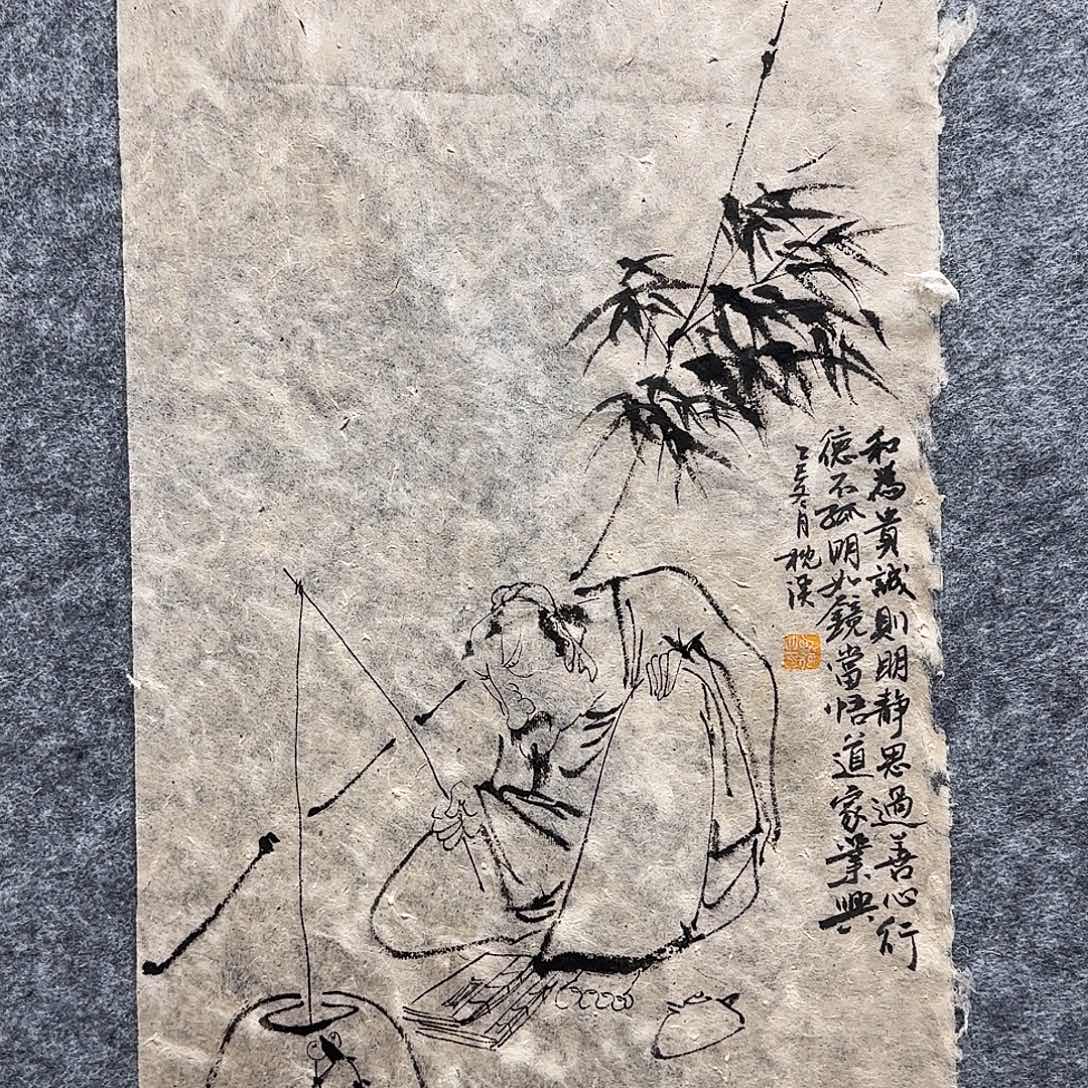 和為貴誠則明靜思過善心行
德不孤明如鏡當悟道家業興
月